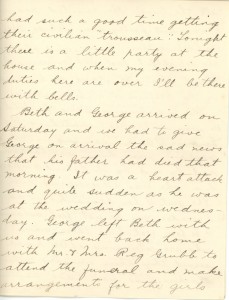 had such a good time getting
their civilian "trousseau". Tonight
there is a little party at the
house and when my evening
duties here are over I'll be there
with bells.
Beth and George arrived on
Saturday and we had to give
George on arrival the sad news
that his father had died that
morning. It was a heart attack
and quite sudden as he was
at the wedding on wednes-
day. George left Beth with
us and went back home
with Mr. & Mrs. Reg Grubb to
attend the funeral and make
arrangements for the girls